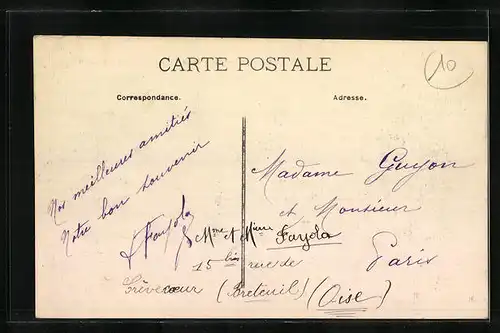 CARTE POSTALE
10
Correspondance.
Adresse.
Nos meilleures amitiés
Notre bon souvenir
Fayola
Madame Guyon
et Monsieur
Paris
Mme et Mieur Fayola
15 bis rue de
Crèvecœur (Breteuil) (Oise)